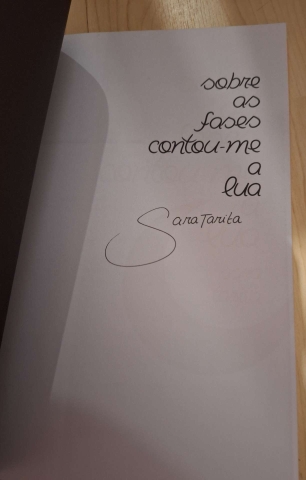 sobre
as
fases
contou-me
a
lua
Sara Tarita